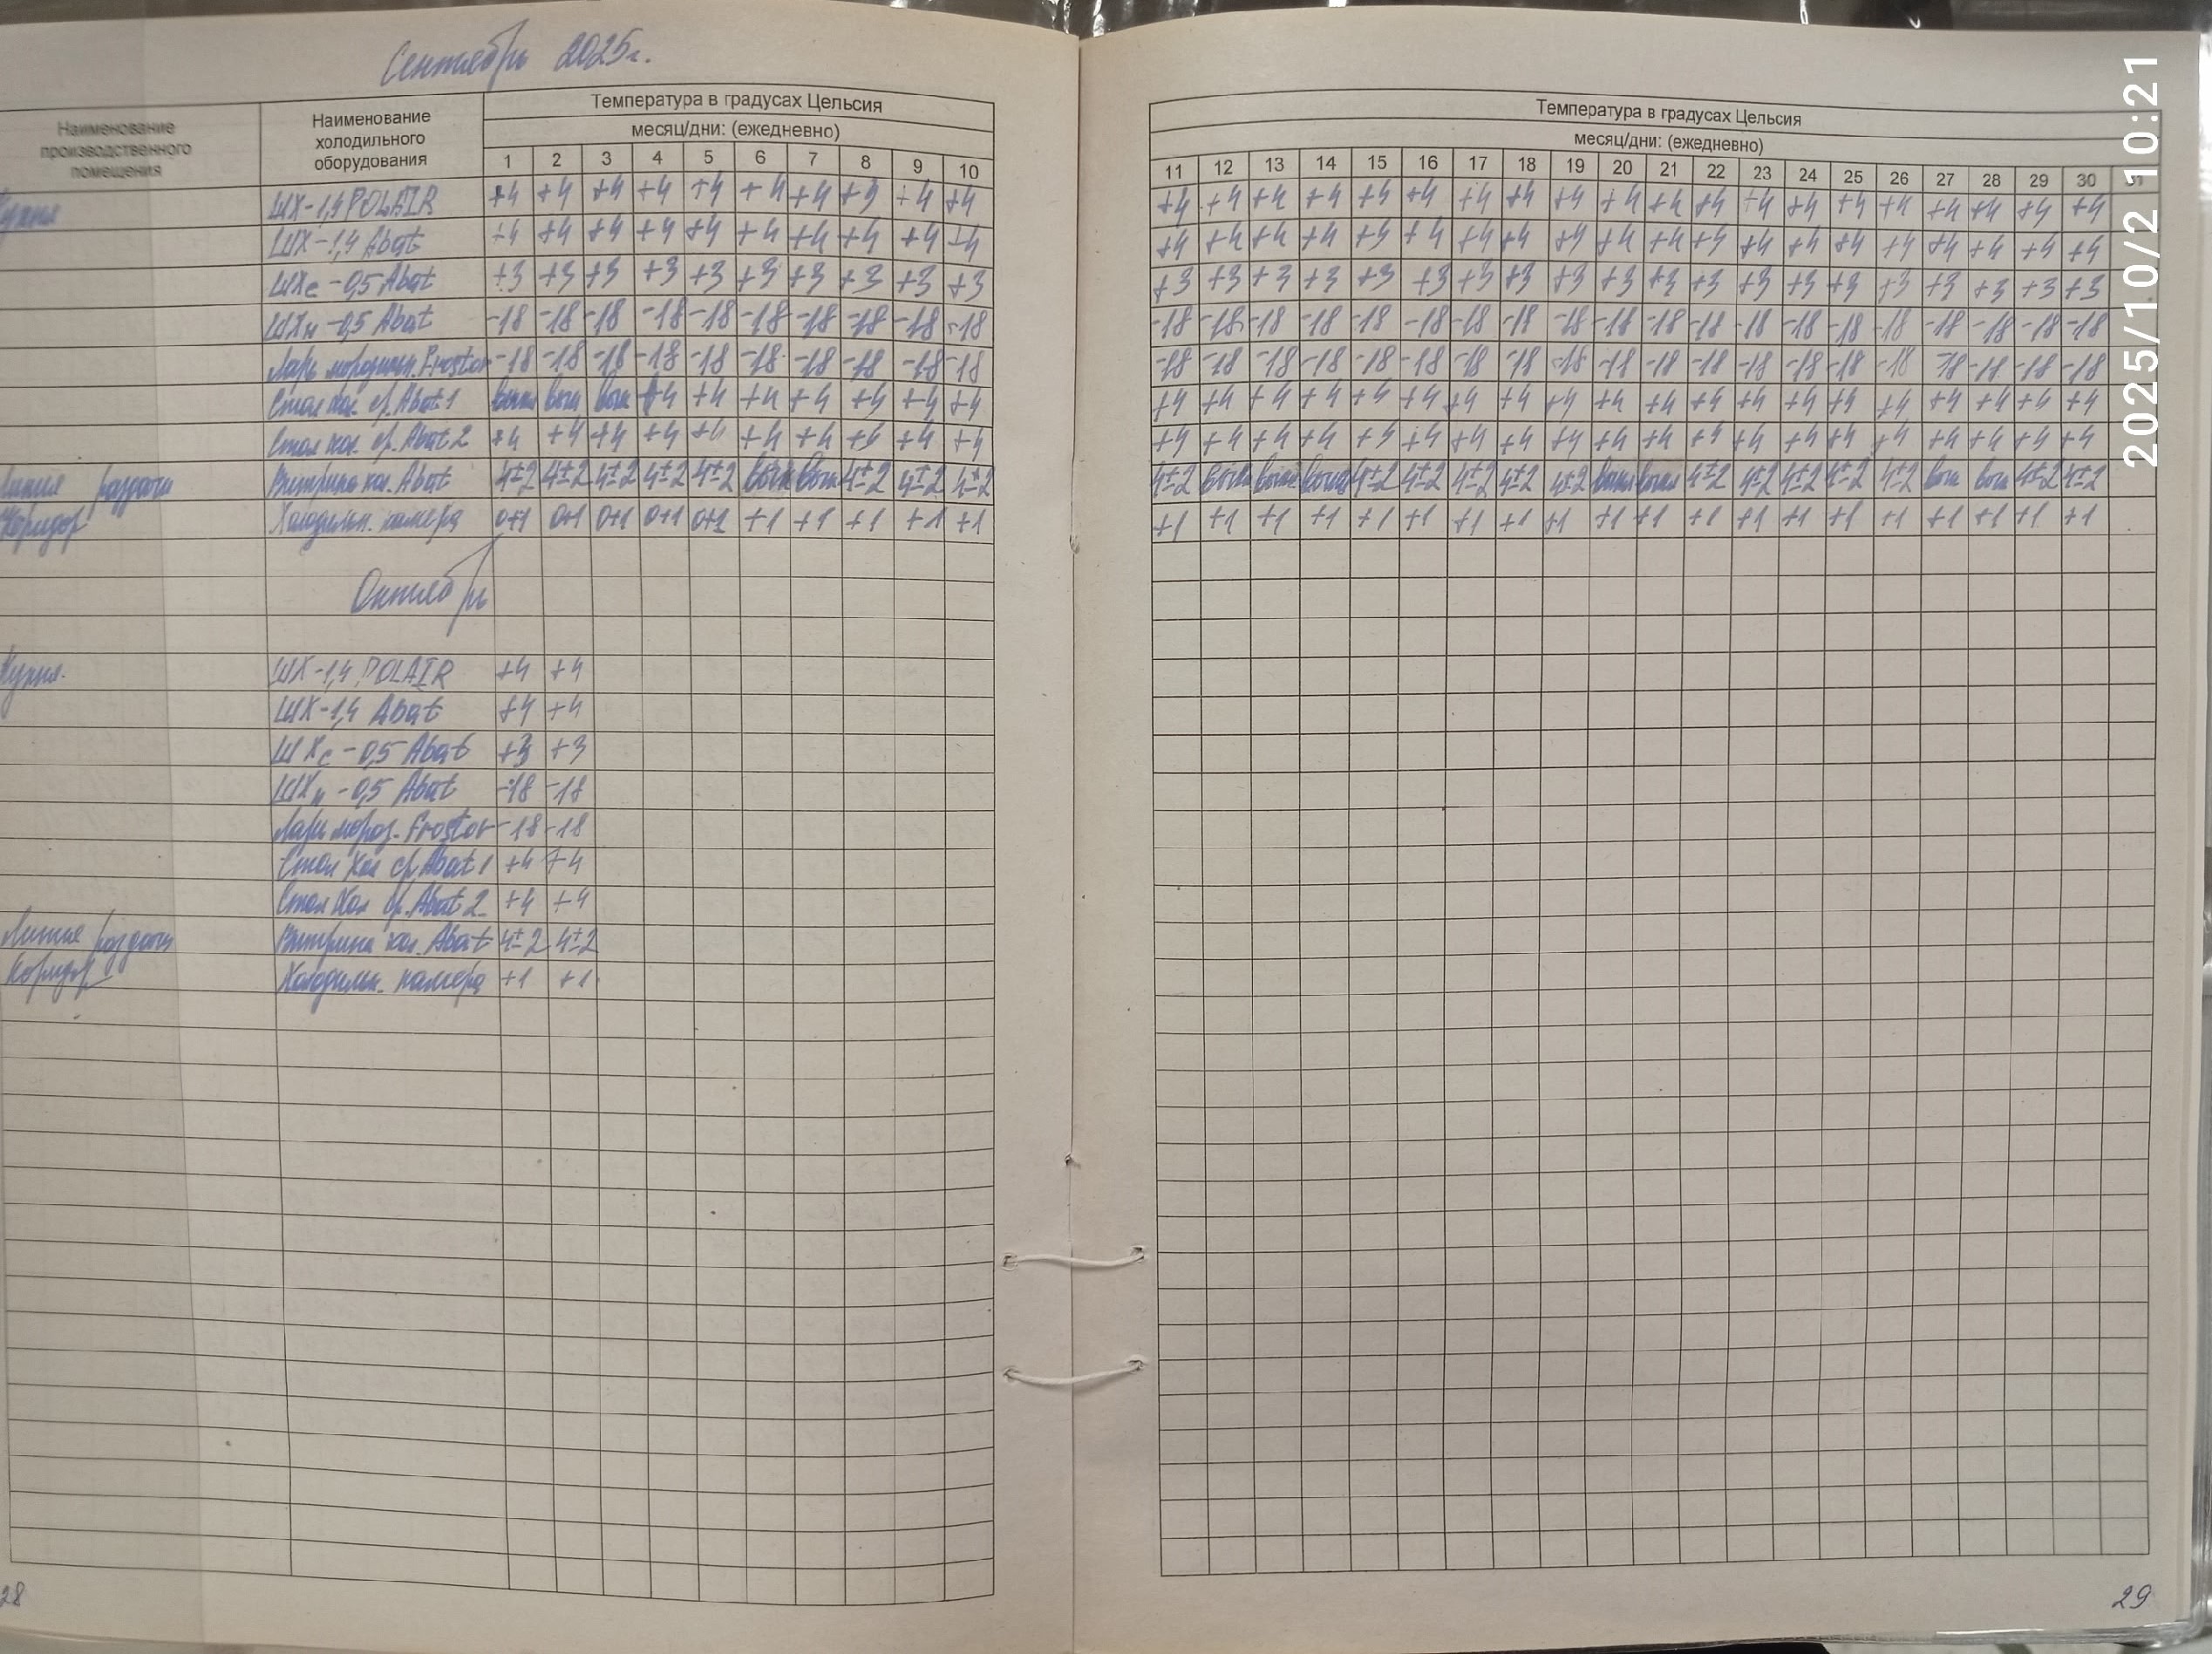 Сентябрь 2025г.
Наименование производственного помещения
Наименование холодильного оборудования
Температура в градусах Цельсия
месяц/дни: (ежедневно)
1 2 3 4 5 6 7 8 9 10
Температура в градусах Цельсия
месяц/дни: (ежедневно)
11 12 13 14 15 16 17 18 19 20 21 22 23 24 25 26 27 28 29 30 31
Кухня ШХ-1,4 POLAIR +4 +4 +4 +4 +4 +4 +4 +4 +4 +4 +4 +4 +4 +4 +4 +4 +4 +4 +4 +4 +4 +4 +4 +4 +4 +4 +4 +4 +4 +4
ШХ-1,4 Abat +4 +4 +4 +4 +4 +4 +4 +4 +4 +4 +4 +4 +4 +4 +4 +4 +4 +4 +4 +4 +4 +4 +4 +4 +4 +4 +4 +4 +4 +4
ШХс-0,5 Abat +3 +3 +3 +3 +3 +3 +3 +3 +3 +3 +3 +3 +3 +3 +3 +3 +3 +3 +3 +3 +3 +3 +3 +3 +3 +3 +3 +3 +3 +3
ШХн-0,5 Abat -18 -18 -18 -18 -18 -18 -18 -18 -18 -18 -18 -18 -18 -18 -18 -18 -18 -18 -18 -18 -18 -18 -18 -18 -18 -18 -18 -18 -18 -18
Ларь морозильн. Frostor -18 -18 -18 -18 -18 -18 -18 -18 -18 -18 -18 -18 -18 -18 -18 -18 -18 -18 -18 -18 -18 -18 -18 -18 -18 -18 -18 -18 -18 -18
Стол хол. ср. Abat 1 выкл выкл выкл +4 +4 +4 +4 +4 +4 +4 +4 +4 +4 +4 +4 +4 +4 +4 +4 +4 +4 +4 +4 +4 +4 +4 +4 +4 +4 +4
Стол хол. ср. Abat 2 +4 +4 +4 +4 +4 +4 +4 +4 +4 +4 +4 +4 +4 +4 +4 +4 +4 +4 +4 +4 +4 +4 +4 +4 +4 +4 +4 +4 +4 +4
Линия раздачи Витрина хол. Abat 4±2 4±2 4±2 4±2 4±2 выкл выкл 4±2 4±2 4±2 4±2 выкл выкл выкл 4±2 4±2 4±2 4±2 4±2 выкл выкл 4±2 4±2 4±2 4±2 4±2 выкл выкл 4±2 4±2
Коридор Холодильн. камера 0+1 0+1 0+1 0+1 0+1 +1 +1 +1 +1 +1 +1 +1 +1 +1 +1 +1 +1 +1 +1 +1 +1 +1 +1 +1 +1 +1 +1 +1 +1 +1
Октябрь
Кухня. ШХ-1,4 POLAIR +4 +4
ШХ-1,4 Abat +4 +4
ШХс-0,5 Abat +3 +3
ШХн-0,5 Abat -18 -18
Ларь мороз. Frostor -18 -18
Стол Хол ср Abat 1 +4 +4
Стол Хол ср. Abat 2 +4 +4
Линия раздачи Витрина хол. Abat 4±2 4±2
Коридор Холодильн. камера +1 +1
28
29
2025/10/2 10:21